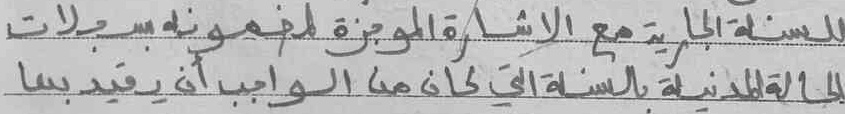 للسنة الجارية مع الاشارة الموجزة لمضمونه بسجلات
الحالة المدنية بالسنة التي كان من الواجب أن يقيد بها